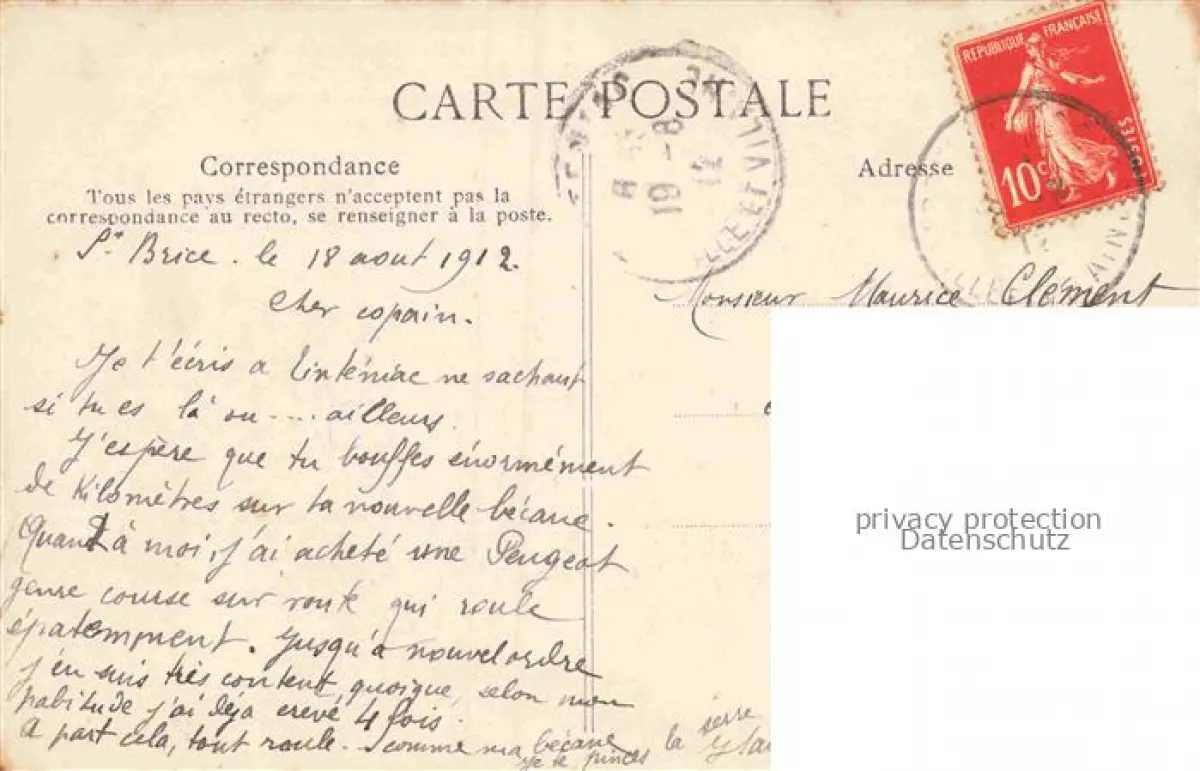 CARTE POSTALE
Correspondance
Tous les pays étrangers n'acceptent pas la
correspondance au recto, se renseigner à la poste.
St Brice. le 18 aout 1912.
Cher copain.
Je t'écris a Tinténiac ne sachant
si tu es là ou .... ailleurs.
J'espère que tu bouffes énormément
de Kilomètres sur ta nouvelle bécane.
Quand à moi, j'ai acheté une Peugeot
genre course sur route qui roule
épatemment. Jusqu'à nouvel ordre
j'en suis très content, quoique, selon mon
habitude j'ai déja crevé 4 fois.
A part cela, tout roule. comme ma bécane
je te
la serre
Adresse
Monsieur Maurice Clément
REPUBLIQUE FRANÇAISE
POSTES
10c
19 - 8
12
ILLE ET VILAINE
privacy protection
Datenschutz